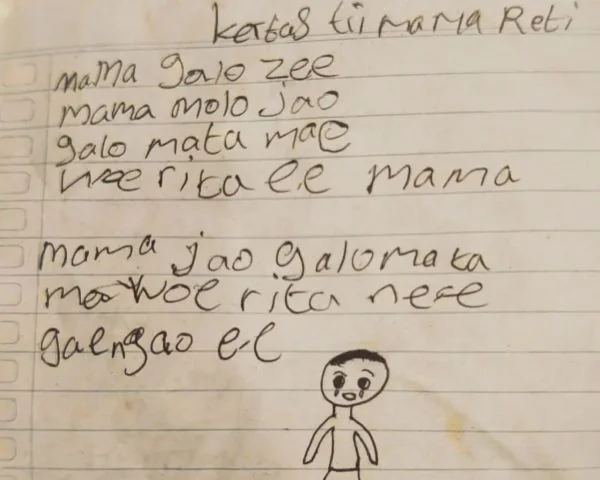 kertas tii mama Reti
mama galo zee
mama molo jao
galo mata mae
woe rita ee mama
mama jao galo mata
mae woe rita ne-e
gae ngao e-e